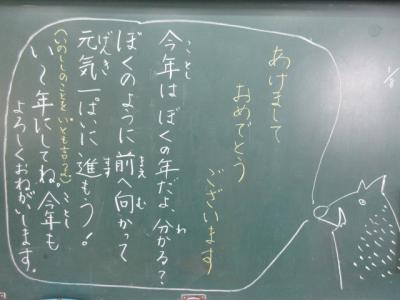 あけまして
おめでとう
ございます
今年はぼくの年だよ、分かる？
ことし
わ
ぼくのように前へ向かって
まえ
む
元気一ぱいに進もう！
げんき
すす
(いのししのことをいとも言うよ)
い〜年にしてね。今年も
ことし
よろしくおねがいします。